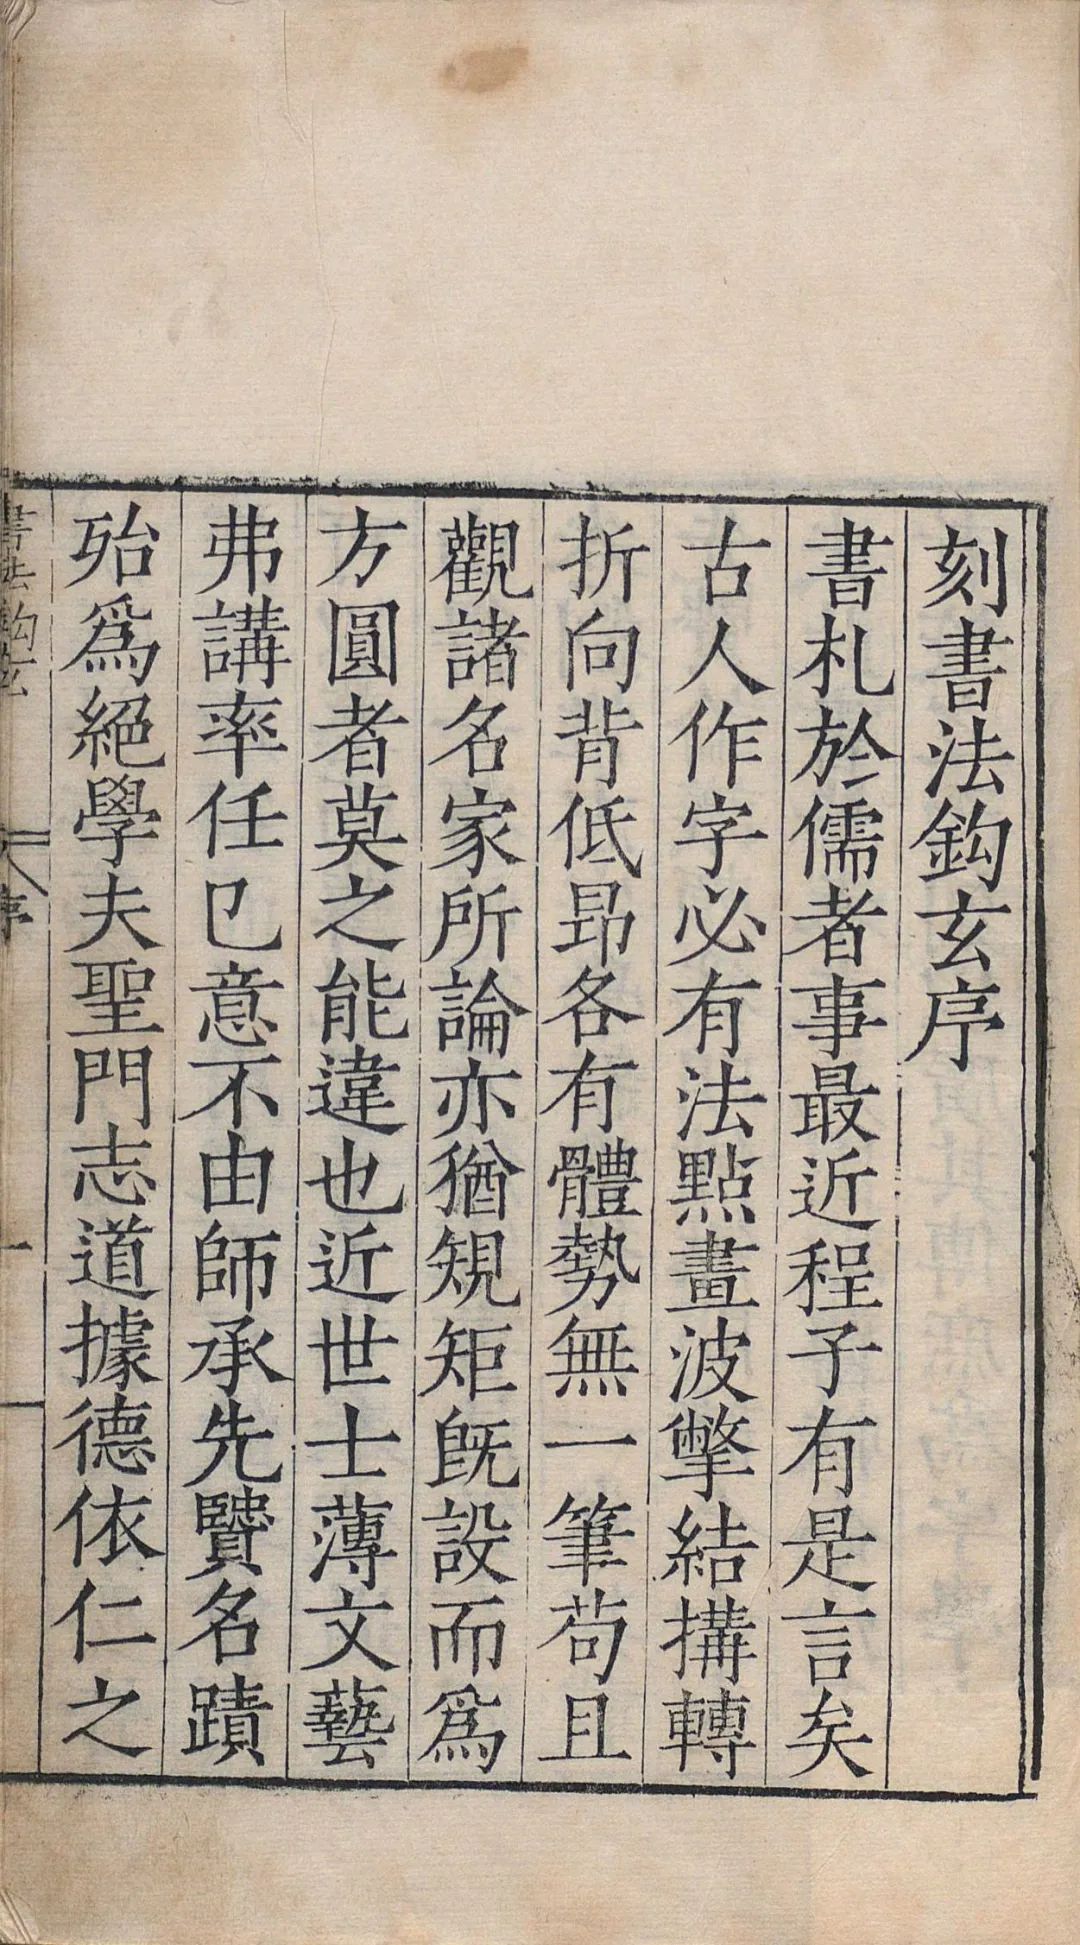 刻書法鈎玄序
書札於儒者事最近程子有是言矣
古人作字必有法點畫波撆結搆轉
折向背低昂各有體勢無一筆苟且
觀諸名家所論亦猶規矩旣設而爲
方圓者莫之能違也近世士薄文藝
弗講率任己意不由師承先贒名蹟
殆爲絕學夫聖門志道據德依仁之
書法鈎玄
序
一